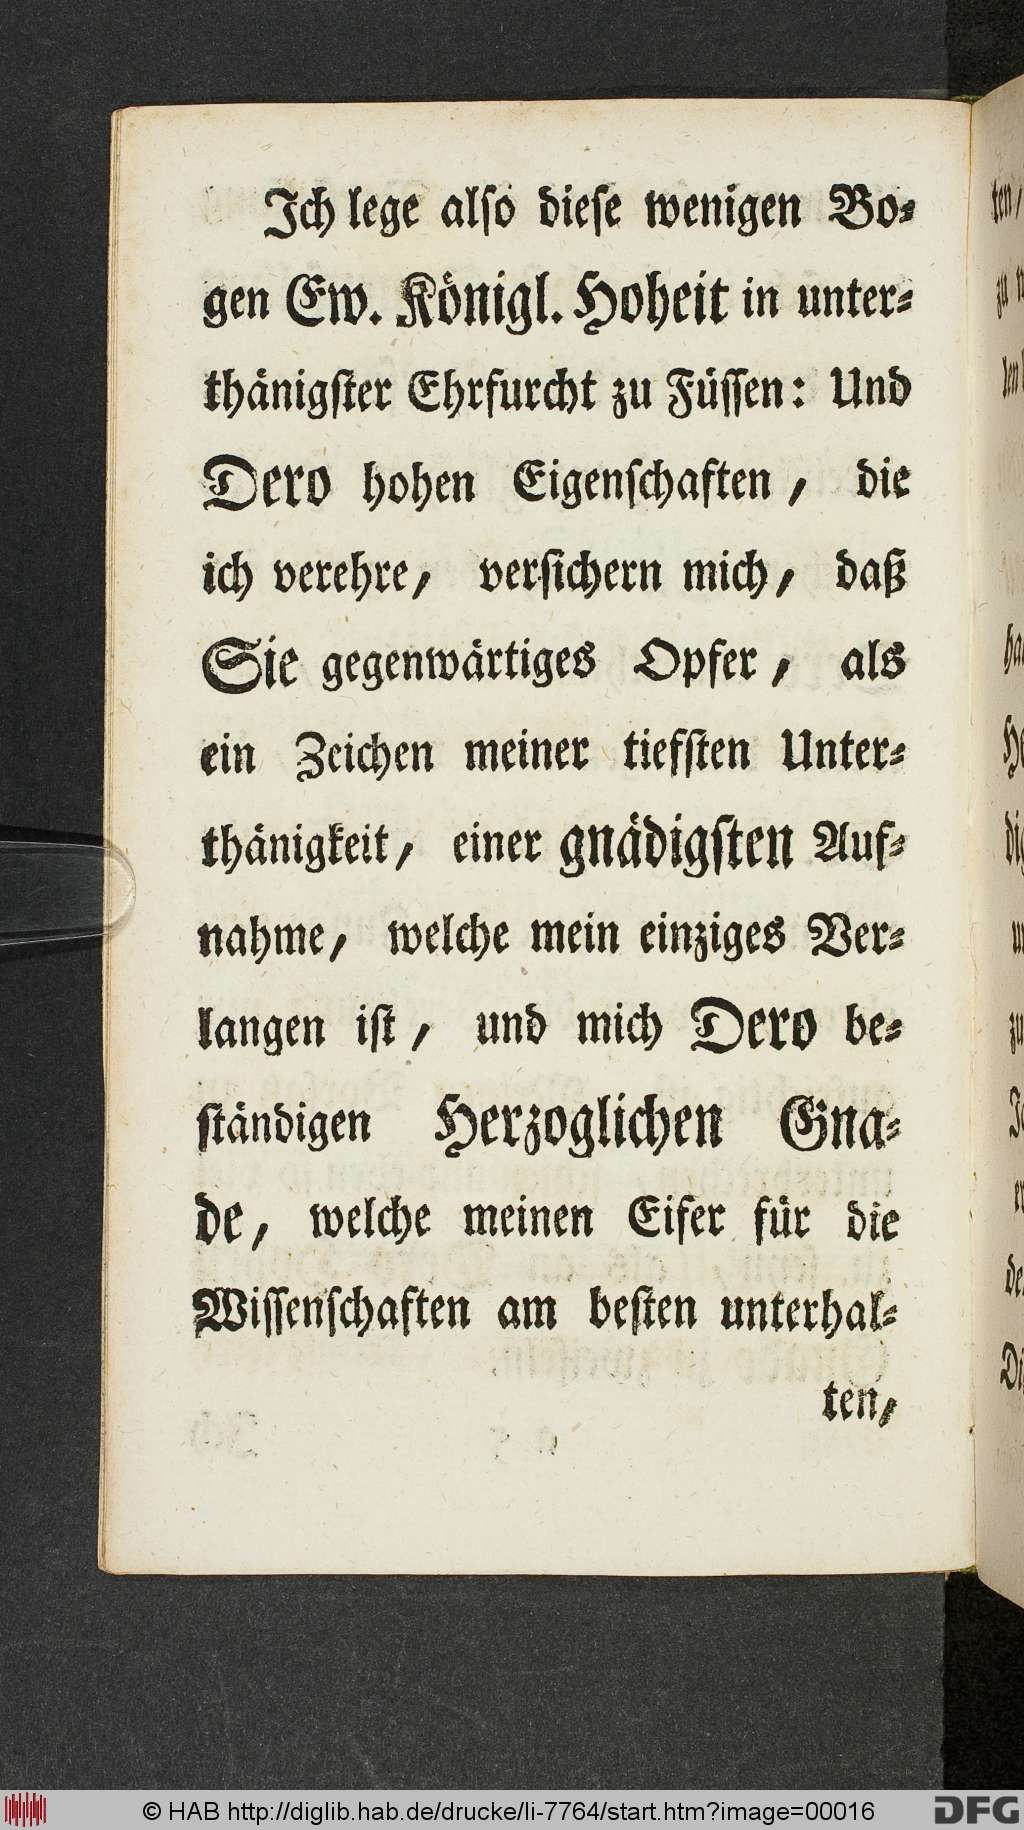 Ich lege also diese wenigen Bo-
gen Ew. Königl. Hoheit in unter-
thänigster Ehrfurcht zu Füssen: Und
Dero hohen Eigenschaften, die
ich verehre, versichern mich, daß
Sie gegenwärtiges Opfer, als
ein Zeichen meiner tiefsten Unter-
thänigkeit, einer gnädigsten Auf-
nahme, welche mein einziges Ver-
langen ist, und mich Dero be-
ständigen Herzoglichen Gna-
de, welche meinen Eifer für die
Wissenschaften am besten unterhal-
ten,
© HAB http://diglib.hab.de/drucke/li-7764/start.htm?image=00016
DFG